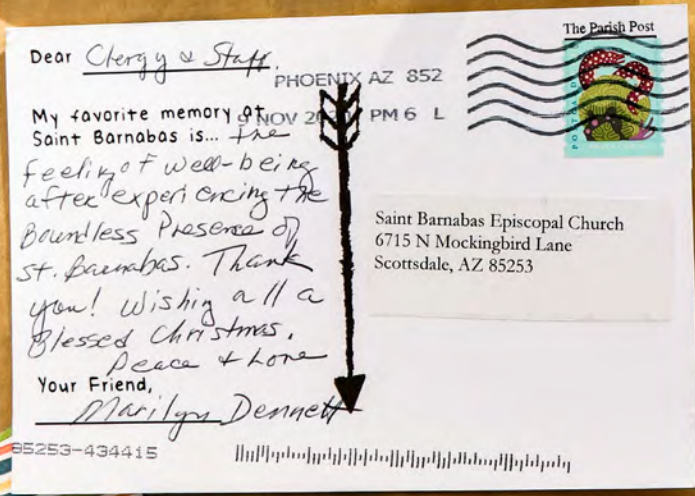 The Parish Post
Dear Clergy & Staff.
PHOENIX AZ 852
9 NOV 2020 PM 6 L
My favorite memory at
Saint Barnabas is... the
feeling of well-being
after experiencing the
Boundless Presence of
St. Barnabas. Thank
you! Wishing all a
Blessed Christmas.
Peace & Love
Your Friend,
Marilyn Dennett
85253-434415
Saint Barnabas Episcopal Church
6715 N Mockingbird Lane
Scottsdale, AZ 85253